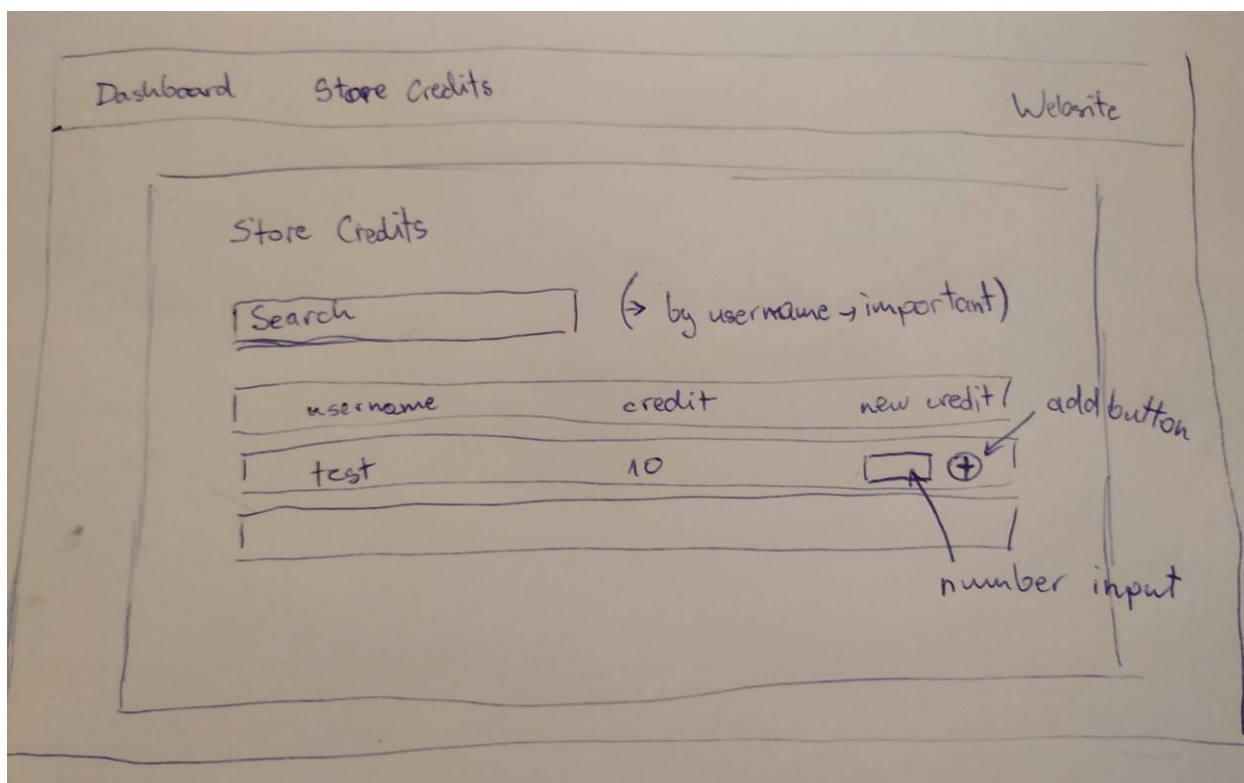 Dashboard Store Credits Website
Store Credits
Search (→ by username → important)
username credit new credit
add button
test 10 +
number input